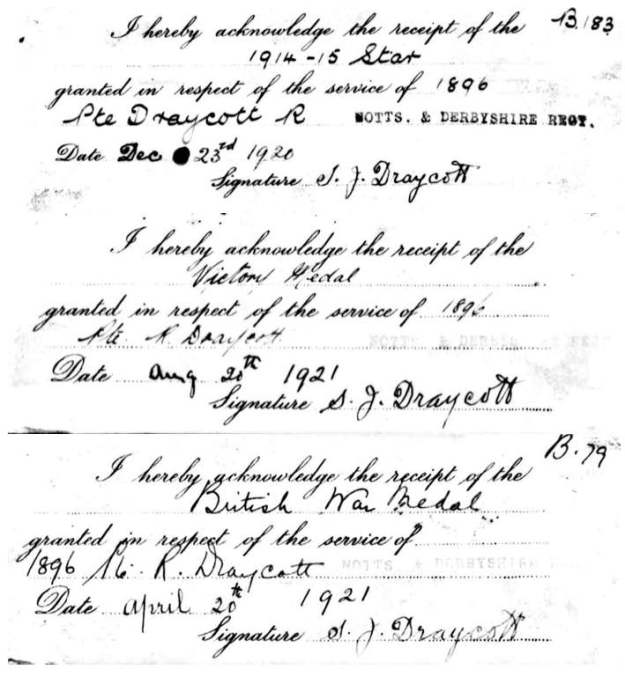 I hereby acknowledge the receipt of the B.183
1914-15 Star
granted in respect of the service of 1896
Pte Draycott R NOTTS. & DERBYSHIRE REGT.
Date Dec 23rd 1920
Signature S. J. Draycott
I hereby acknowledge the receipt of the
Victory Medal
granted in respect of the service of 1896
Pte. R. Draycott NOTTS. & DERBYSHIRE REGT
Date Aug 20th 1921
Signature S. J. Draycott
B.79
I hereby acknowledge the receipt of the
British War Medal
granted in respect of the service of
1896 R. Draycott NOTTS. & DERBYSHIRE
Date April 20th 1921
Signature S. J. Draycott